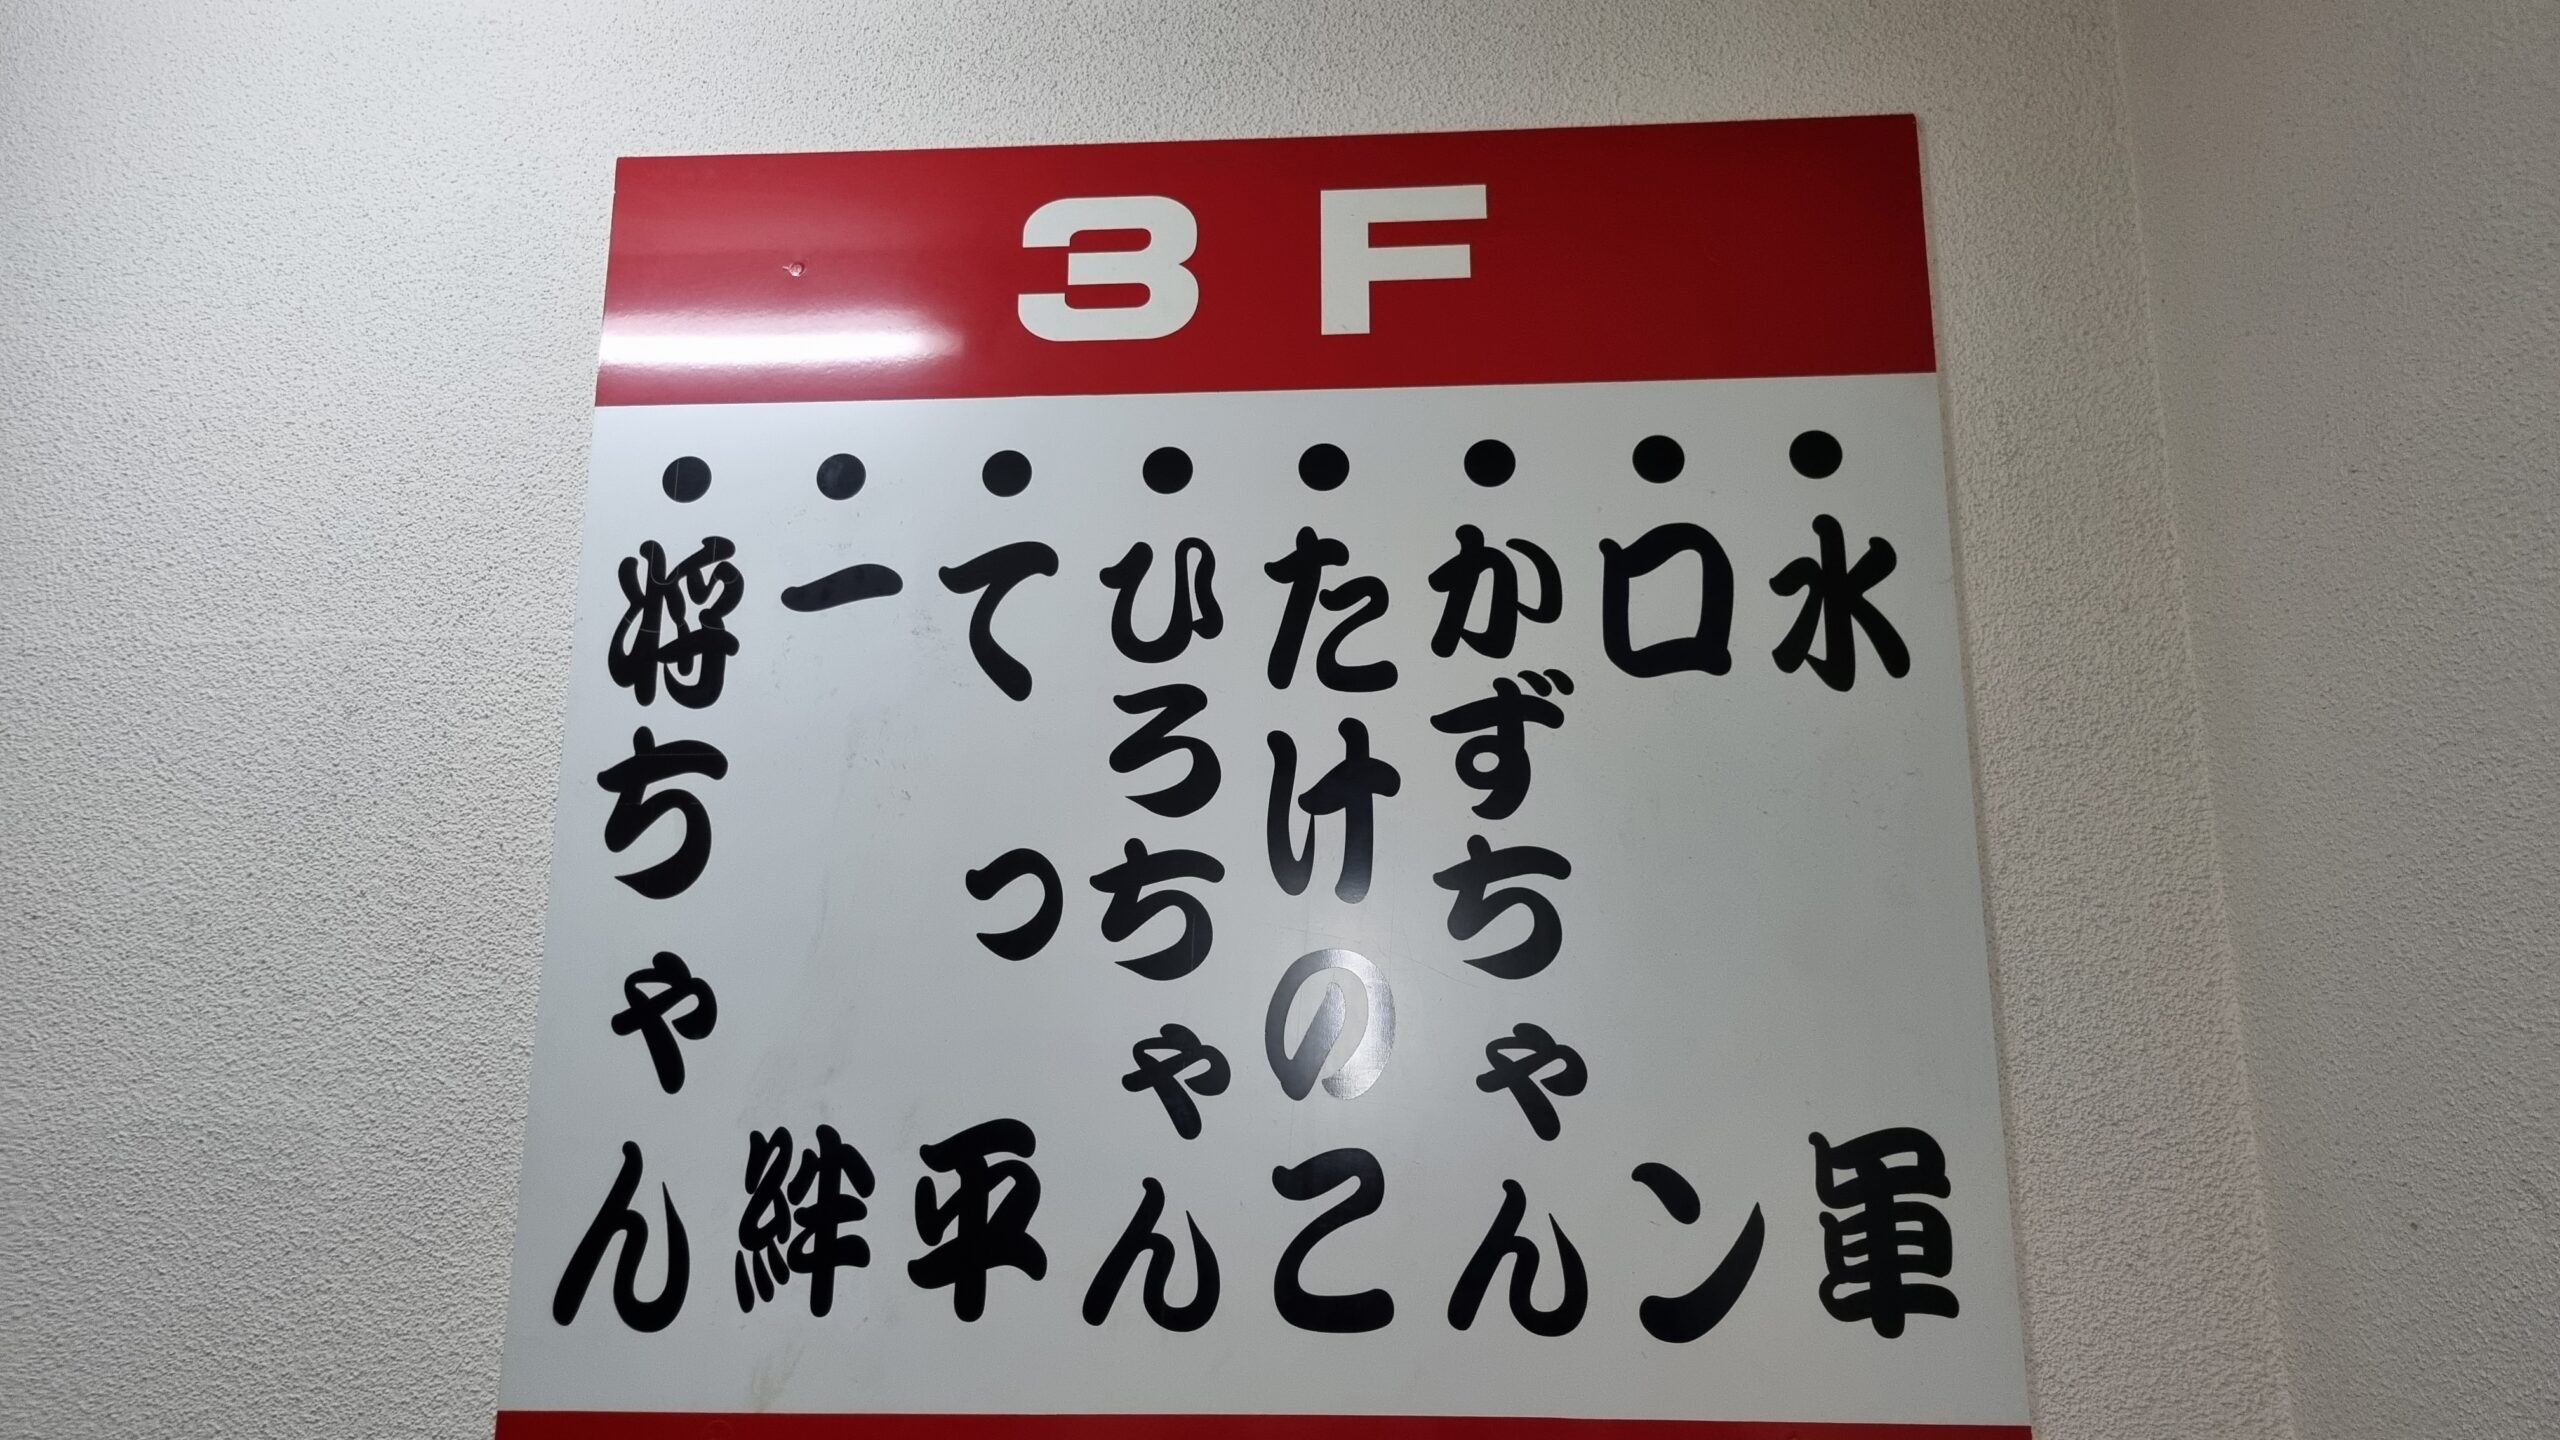 3F
・水軍
・ロン
・かずちゃん
・たけのこ
・ひろちゃん
・てっ平
・一絆
・将ちゃん